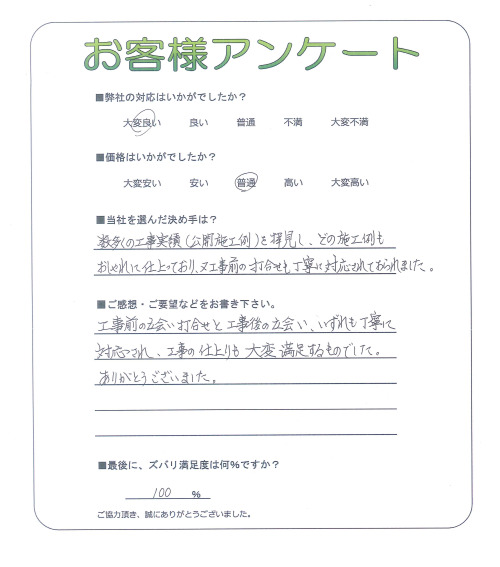 お客様アンケート
■弊社の対応はいかがでしたか？
大変良い 良い 普通 不満 大変不満
■価格はいかがでしたか？
大変安い 安い 普通 高い 大変高い
■当社を選んだ決め手は？
数多くの工事実績（公開施工例）を拝見し、どの施工例も
おしゃれに仕上っており、又工事前の打合せも丁寧に対応されておられました。
■ご感想・ご要望などをお書き下さい。
工事前の立会い打合せと工事後の立会い、いずれも丁寧に
対応され、工事の仕上りも大変満足するものでした。
ありがとうございました。
■最後に、ズバリ満足度は何％ですか？
100 ％
ご協力頂き、誠にありがとうございました。